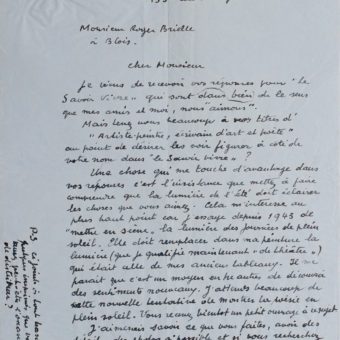 Monsieur Roger Brielle
à Blois.
cher Monsieur
Je viens de recevoir vos réponses pour "le
Savoir Vivre" qui sont dans bien de le sens
que mes amis et moi, nous "aimons".
Mais tenez vous beaucoup à vos titres d'
"Artiste-peintre, écrivain d'art et poète"
au point de désirer les voir figurer à côté de
votre nom dans "le Savoir vivre" ?
Une chose qui me touche d'avantage dans
vos réponses c'est l'insistance que mettez à faire
comprendre que la lumière de l'été doit éclairer
les choses que vous aimez. Cela m'intéresse au
plus haut point car j'essaye depuis 1943 de
"mettre en scène" la lumière des journées de plein
soleil. Elle doit remplacer dans ma peinture la
lumière (que je qualifie maintenant "de théâtre")
qui était celle de mes anciens tableaux. Il me
parait que c'est un moyen entre autres de découvrir
des sentiments nouveaux. J'attends beaucoup de
cette nouvelle tentative de montrer la poésie en
plein soleil. Vous recevrez bientôt un petit ouvrage à ce sujet
J'aimerais savoir ce que vous faites, avoir des
P.S
de distributeur ?